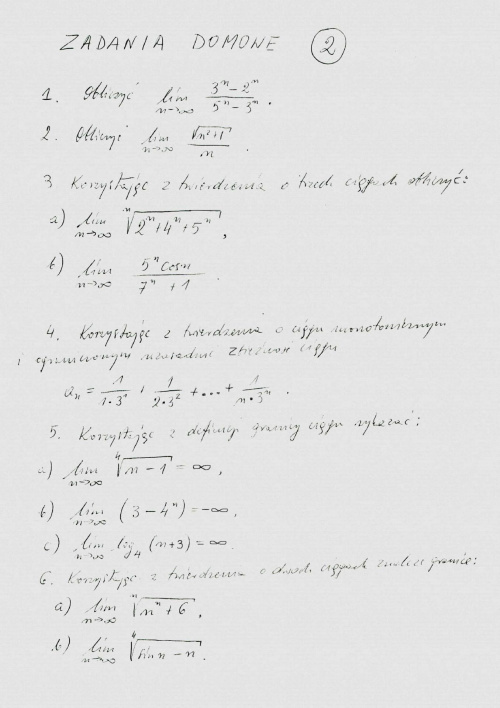 ZADANIA DOMONE 2
1. Obliczyć lim n→∞ (3^n − 2^n)/(5^n − 3^n).
2. Obliczyć lim n→∞ √(n²+1)/n.
3 Korzystając z twierdzenia o trzech ciągach obliczyć:
a) lim n→∞ ⁿ√(2^n + 4^n + 5^n),
b) lim n→∞ (5^n cos n)/(7^n + 1).
4. Korzystając z twierdzenia o ciągu monotonicznym
i ograniczonym uzasadnić zbieżność ciągu
a_n = 1/(1·3^1) + 1/(2·3^2) + ... + 1/(n·3^n).
5. Korzystając z definicji granicy ciągu wykazać:
a) lim n→∞ ⁴√(n − 1) = ∞,
b) lim n→∞ (3 − 4^n) = −∞,
c) lim n→∞ log_4 (n+3) = ∞.
6. Korzystając z twierdzenia o dwóch ciągach znaleźć granice:
a) lim n→∞ ⁿ√(n^n + 6),
b) lim n→∞ ⁴√(sin n − n).